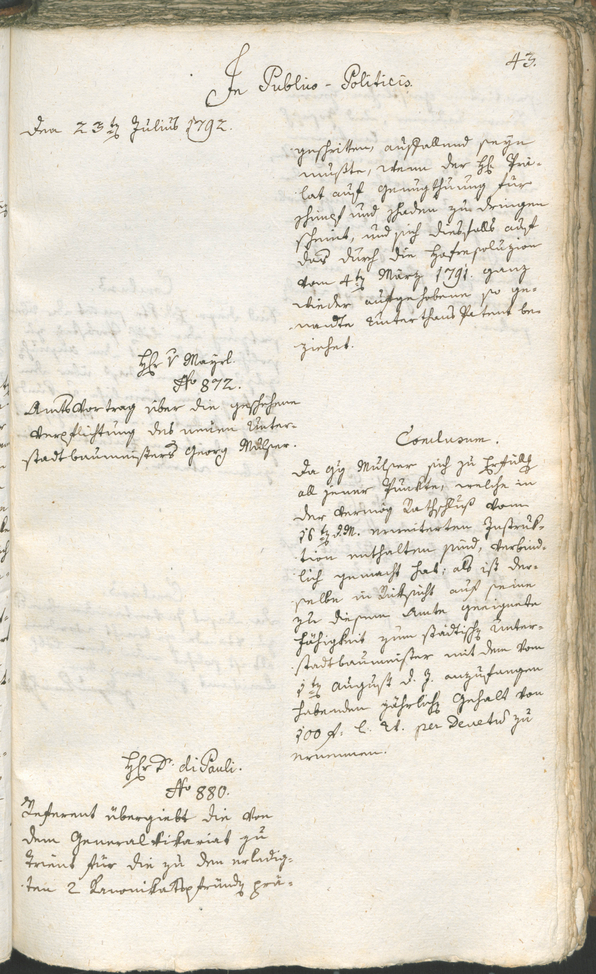 43.
In Publico-Politicis.
Den 23ts Julius 1792.
geschritten, auffallend seyn
müßte, wenn der H. Prä-
lat auf Genugthuung für
Schimpf und Schaden zu dringen
scheint, und sich diesfalls auf
das durch die Hofresoluzion
vom 4ts März 1791. ganz
wieder aufgehobene so ge-
nannte Unterthans Patent be-
ziehet.
Hr v Mayrl.
No 872.
Amtsvortrag über die geschehene
Verpflichtung des neuen Unter-
stadtbaumeisters Georg Mülser.
Conclusum.
Da Gg Mülser sich zu Erfüllg
all jener Punkte, welche in
der vermög Rathschluß vom
16ts d. M. erweiterten Instruk-
tion enthalten sind, verbind-
lich gemacht hat; als ist der-
selbe in Rücksicht auf seine
zu diesem Amte geeignete
Fähigkeit zum städtisch Unter-
stadtbaumeister mit dem vom
1ts August d. J. anzufangen
habenden jährlich Gehalt von
100 f. per Decretū zu
ernennen.
Hr Dr di Pauli.
No 880.
Referent übergiebt die von
dem Generalvikariat zu
Trient für die zu den erledig-
ten 2 Kanonikatspfründ prä-